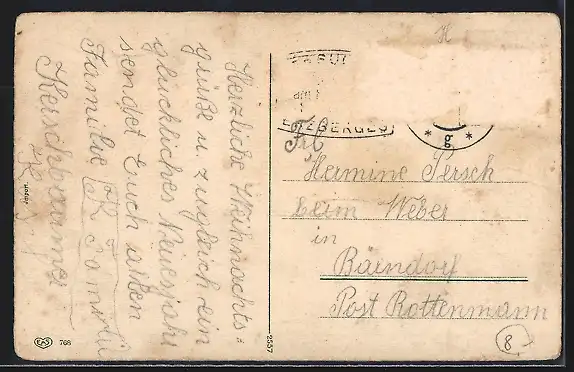 Herzliche Weihnachts=
grüße u. zugleich ein
glückliches Neuesjahr
sendet Euch allen
Familie
Kerschbaumer
Frl
Hermine Persch
beim Weber
in
Bärndorf
Post Rottenmann
* g *
8
768
2557